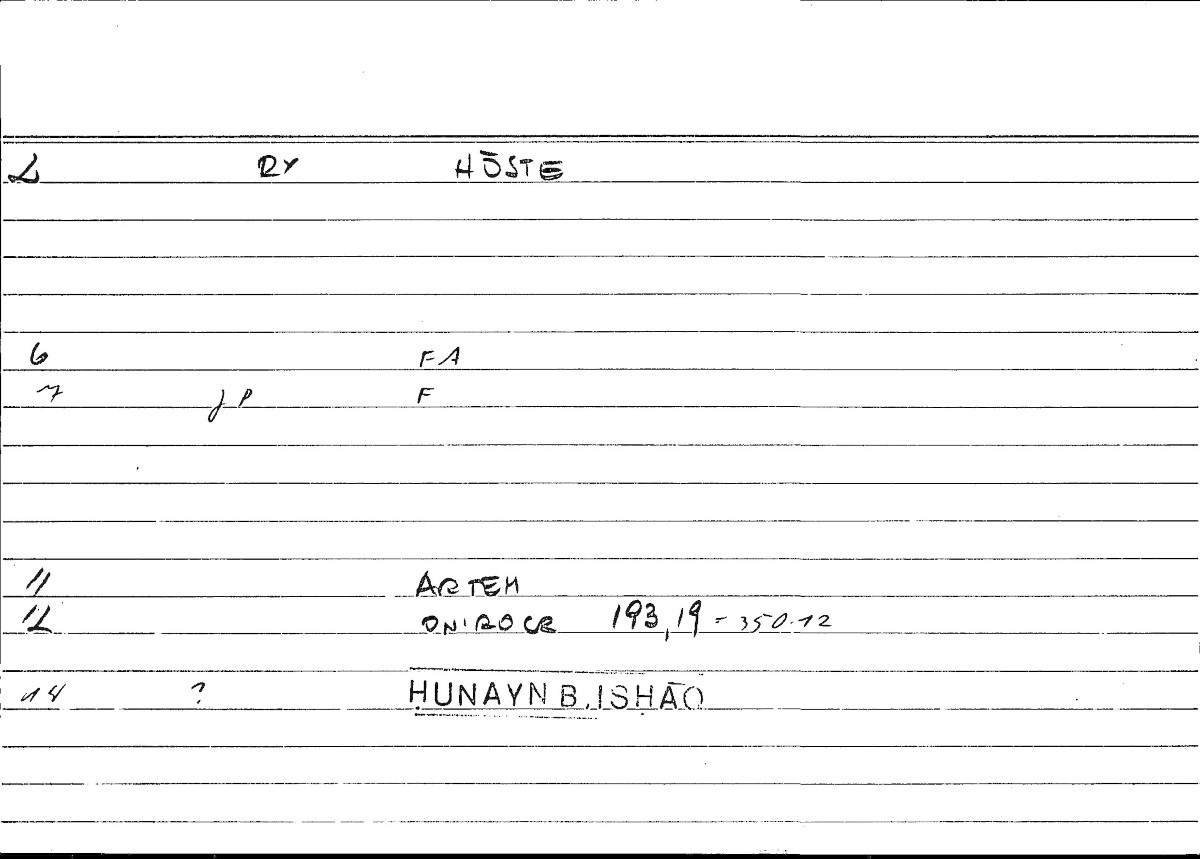 2 RY HŌSTE
6 FA
7 JP F
11 ARTEM
12 ONIROCR 193,19 = 350.12
14 ? ḤUNAYN B. ISḤĀQ